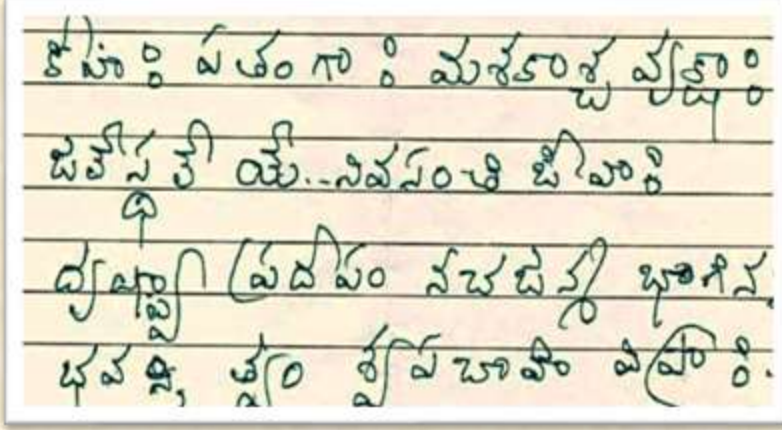 కీటాః పతంగాః మశకాశ్చ వృక్షాః
జలేస్థలే యే..నివసంతి జీవాః
దృష్ట్వా ప్రదీపం నచజన్మ భాగిన
భవన్తి త్వం శ్వపచాహి విప్రాః.